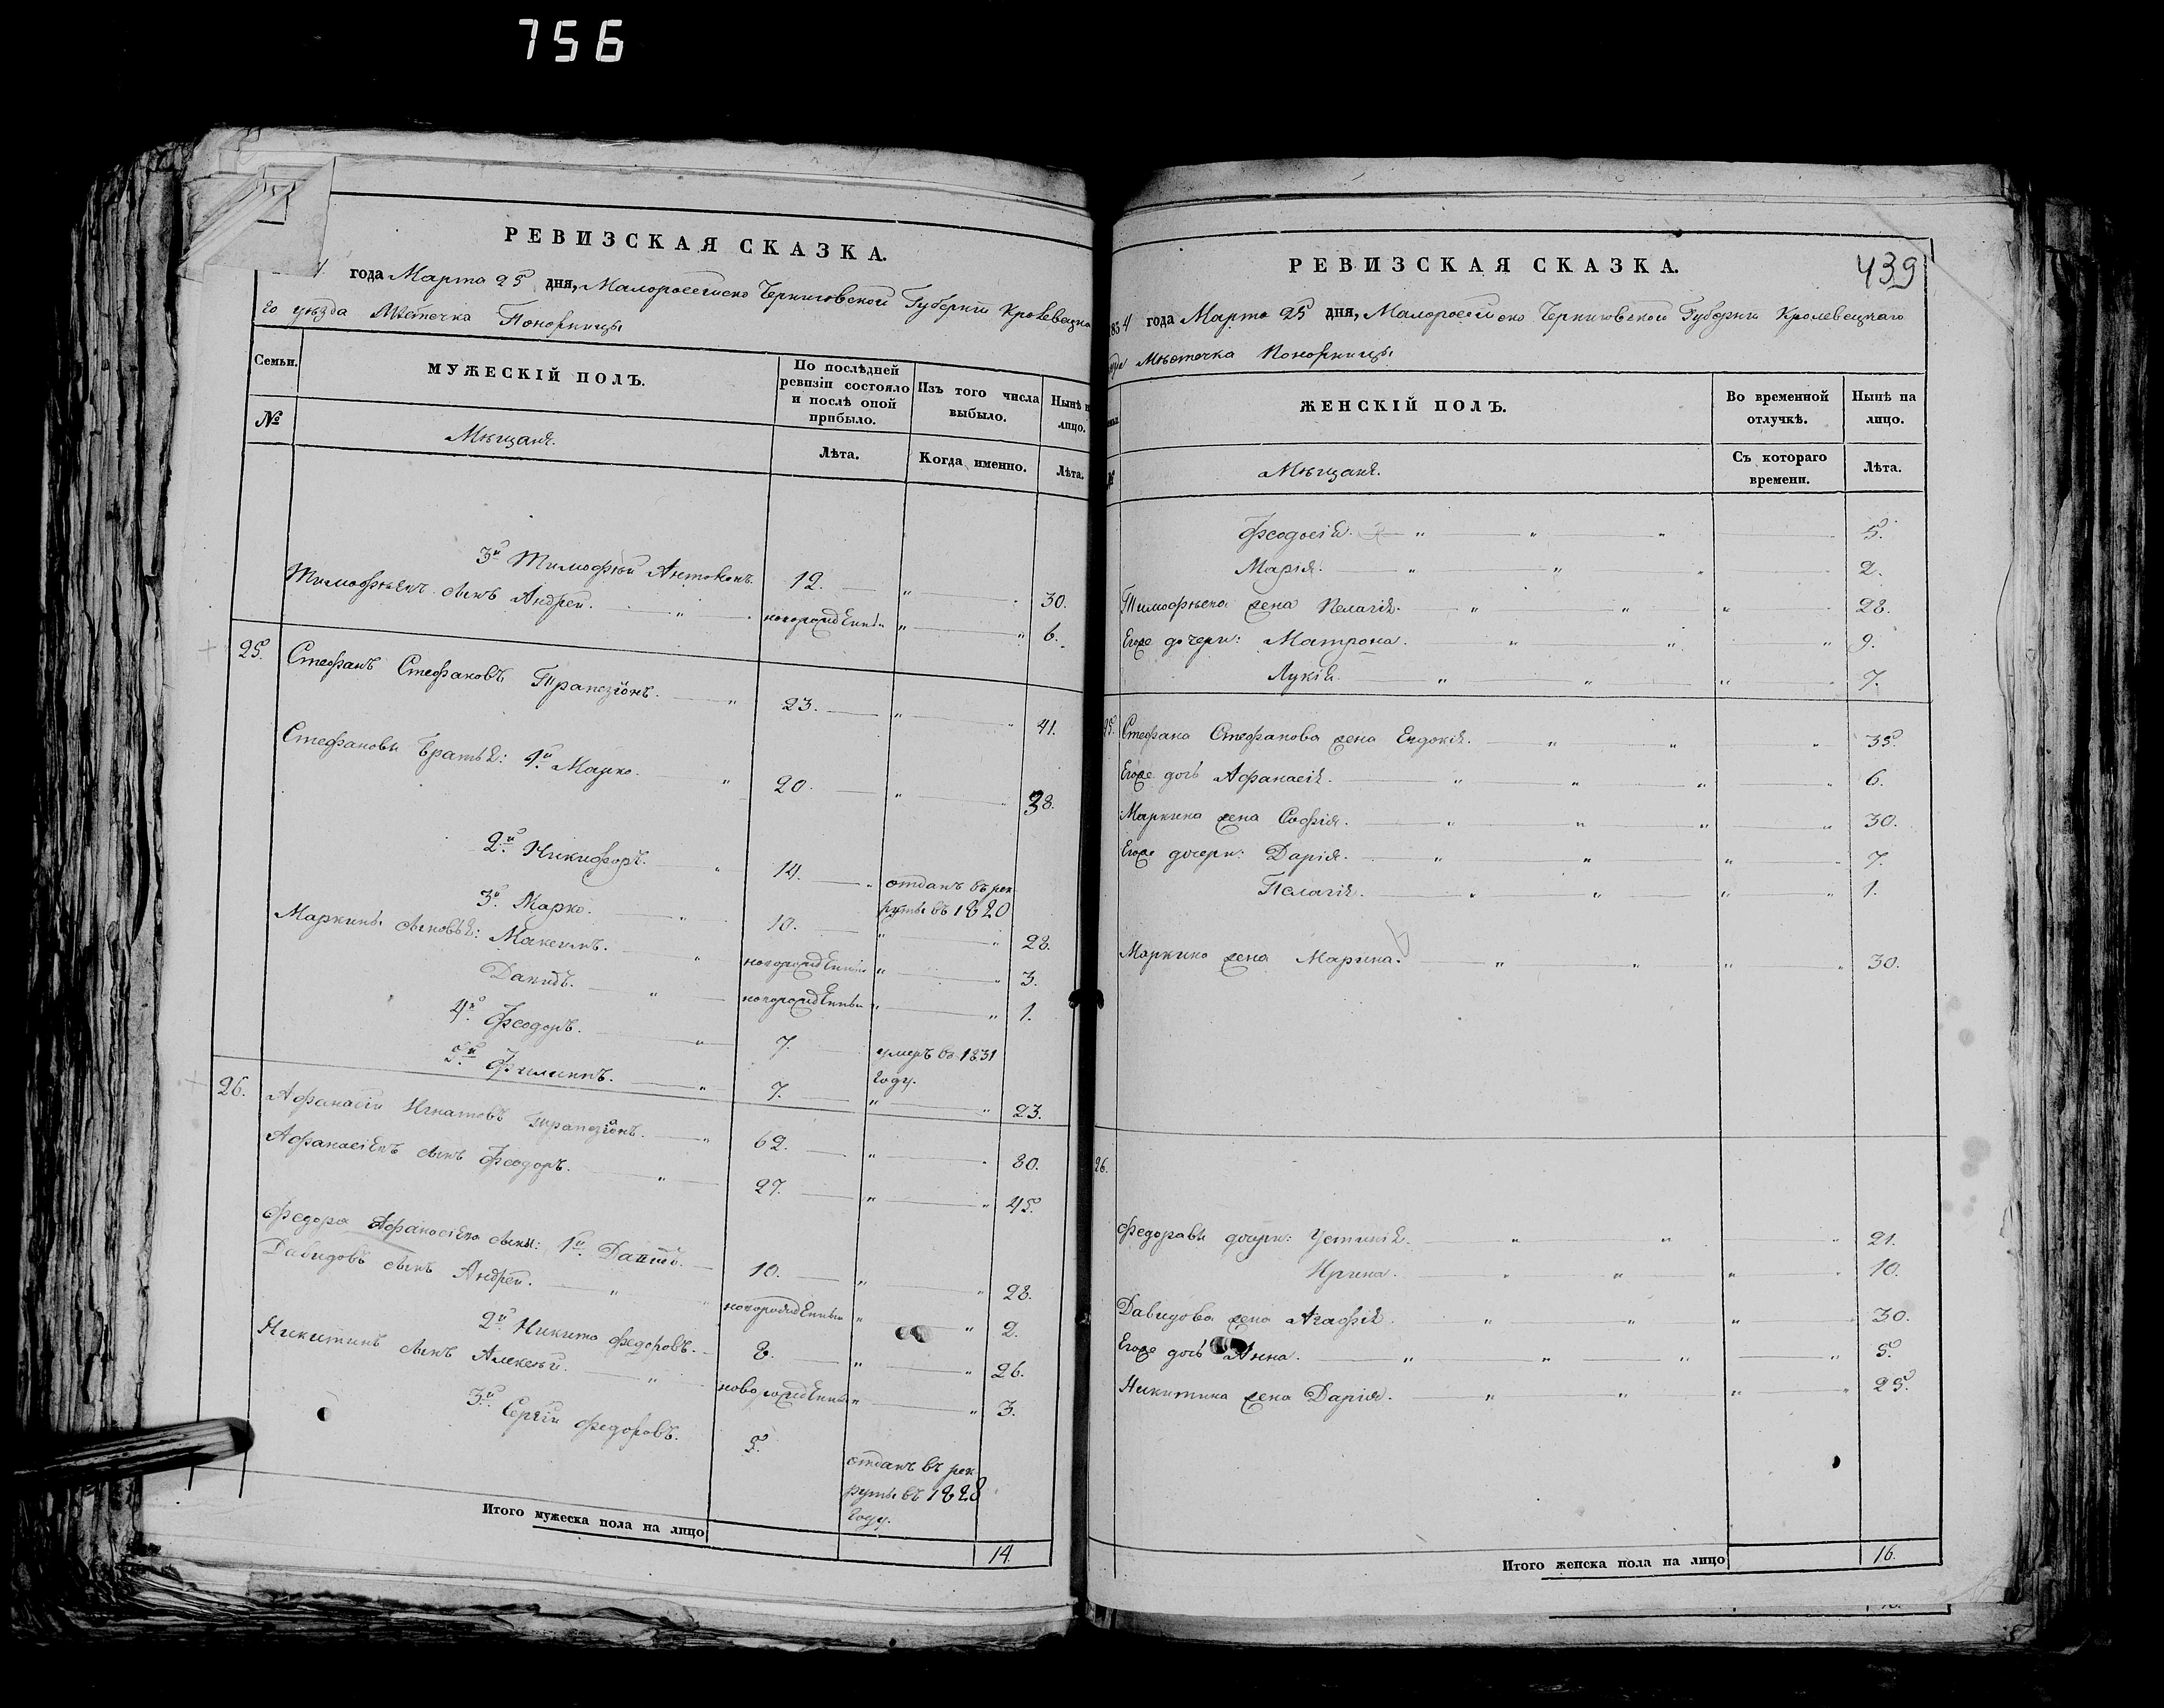 756
РЕВИЗСКАЯ СКАЗКА.
года Марта 25 дня, Малороссійско Черниговской Губерніи Кролевецка
го уѣзда Мѣстечка Понорницы
Семьи.
№
МУЖЕСКІЙ ПОЛЪ.
Мѣщане.
По послѣдней ревизіи состояло и послѣ оной прибыло.
Лѣта.
Изъ того числа выбыло.
Когда именно.
Нынѣ н лицо.
Лѣта.
3й Тимофѣй Антоновъ. 12. 30.
Тимофѣевъ сынъ Андрей. новорожденный 6.
25. Стефанъ Стефановъ Трапезіонъ. 23. 41.
Стефановы братья: 1й Марко. 20. 38.
2й Никифоръ. 14. отданъ въ рек
руты въ 1820
3й Марко. 10. 28.
Маркины сыновья: Максимъ. новорожденный 3.
Давидъ. новорожденный 1.
4й Феодоръ. 7. умеръ въ 1831
году.
5й Филиппъ. 7. 23.
26. Афанасій Игнатовъ Трапезіонъ. 62. 80.
Афанасіевъ сынъ Феодоръ. 27. 45.
Федора Афанасіева сыны: 1й 10. 28.
Давидовъ сынъ Андрей. новорожденный 2.
2й Никита Федоровъ. 8. 26.
Никитинъ сынъ Алексѣй. новорожденный 3.
3й Сергій Федоровъ. 5. отданъ въ рек
руты въ 1828
году.
Итого мужеска пола на лицо 14.
439
РЕВИЗСКАЯ СКАЗКА.
1834 года Марта 25 дня, Малороссійско Черниговской Губерніи Кролевецкаго
Мѣстечка Понорницы
№
ЖЕНСКІЙ ПОЛЪ.
Мѣщане.
Во временной отлучкѣ.
Съ котораго времени.
Нынѣ на лицо.
Лѣта.
Феодосія. 5.
Марія. 2.
Тимофѣева жена Пелагія. 28.
Егоже дочери: Матрона. 9.
Лукія. 7.
25. Стефана Стефанова жена Евдокія. 35.
Егоже дочь Афанасія. 6.
Маркина жена Софія. 30.
Егоже дочери: Дарія. 7.
Пелагія. 1.
Маркина жена Марина. 30.
26.
Федоравы дочери: Устинія. 21.
Ирина. 10.
Давидова жена Агафія. 30.
Егоже дочь Анна. 5.
Никитина жена Дарія. 25.
Итого женска пола на лицо 16.